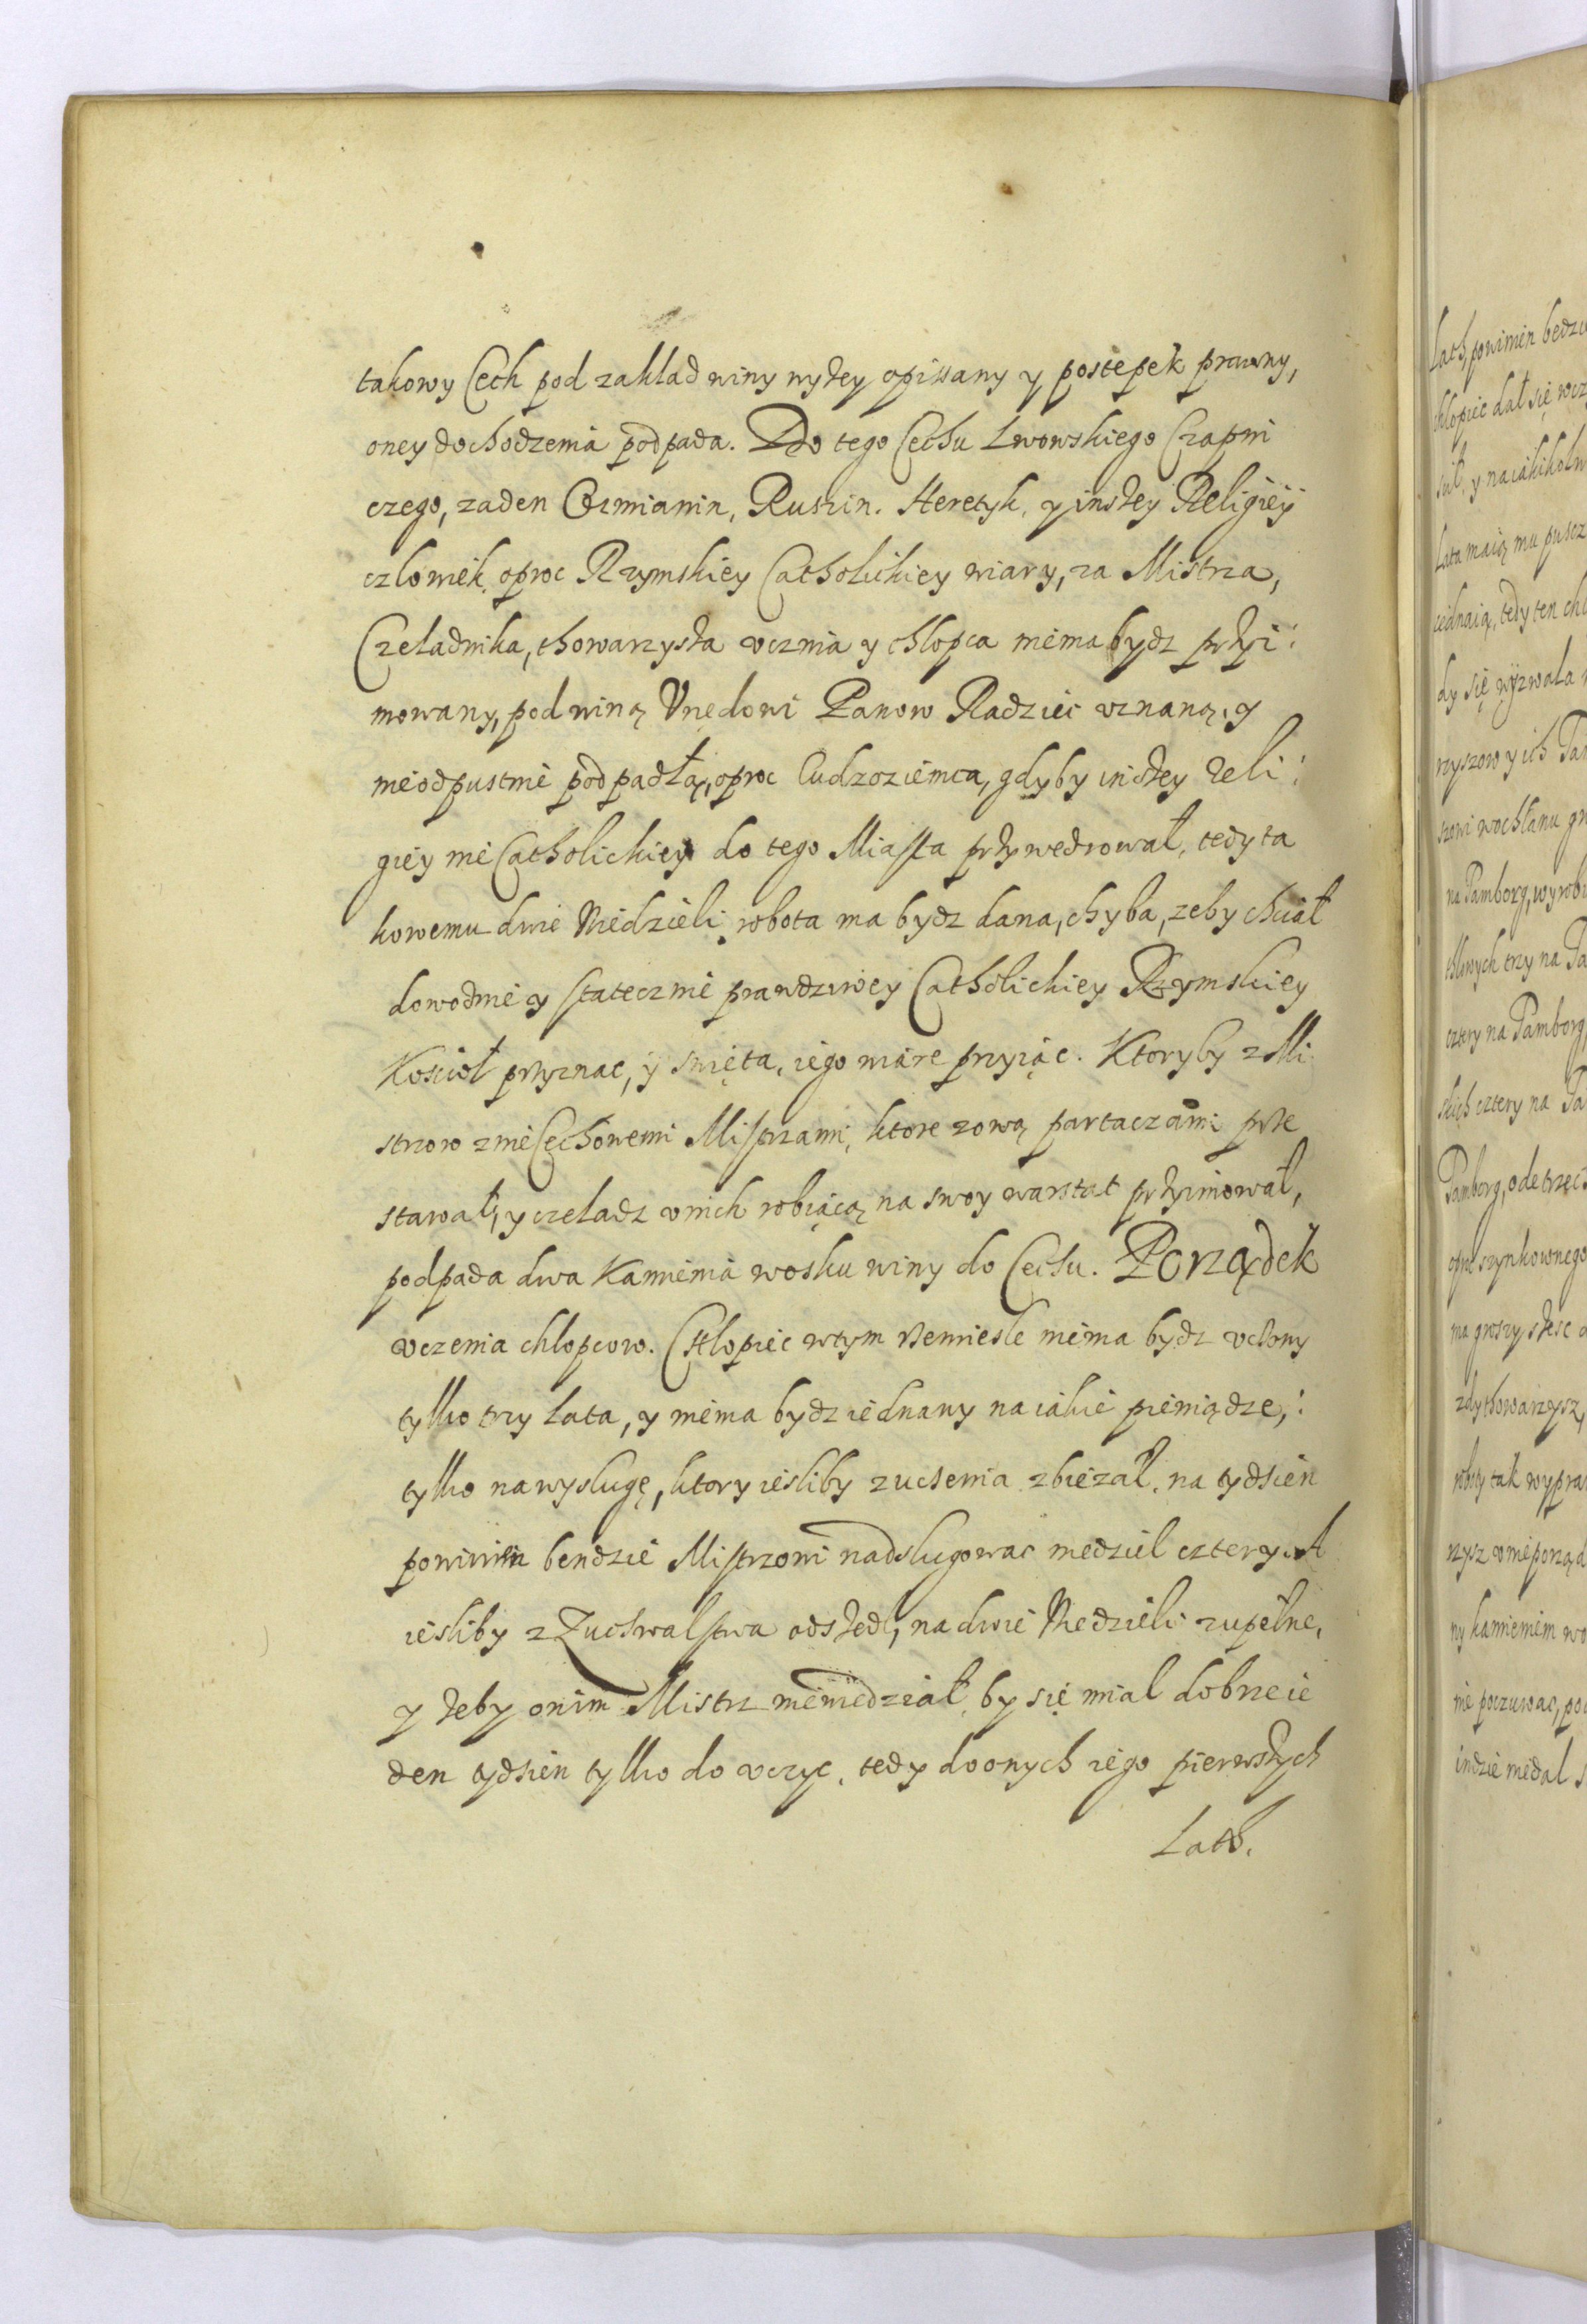 takowy Cech pod zakład winy wyżey opissany y postepek prawny,
oney dochodzenia podpada. Do tego Cechu Lwowskiego Czapni
czego, zaden Ormianin, Ruszin. Heretyk, y inszey Religiey
człowiek, oproc Rzymskiey Catholickiey wiary, za Mistrza,
Czeladnika, thowarzysza vcznia y chłopca niema bydz przyi:
mowany, pod winą Vrzędowi Panow Radziec vznaną, y
nieodpustnie podpadłą, oproc Cudzoziemca, gdyby inszey Reli:
giey nie Catholickiey do tego Miasta przywedrował, tedy ta
kowemu dwie Niedzieli robota ma bydz dana, chyba, zeby chciał
dowodnie y statecznie prawdziwey Catholickiey Rzymskiey
Kościoł przyznac, y swięta, iego wiare przyiąc. Ktoryby z Mi
strzow z nie Cechowemi Mistrzami, ktore zową partaczami prze
stawał, y czeladz v nich robiącą na swoy warstat przyimował,
podpada dwa Kamienia wosku winy do Cechu. Porządek
vczenia chłopcow. Chłopiec w tym Remieśle niema bydz vczony
tylko trzy lata, y niema bydz iednany na iakie pieniądze,:
tylko na wysługę, ktory iesliby z uczenia zbiezał, na tydzien
powinien bendzie Mistrzowi nadsługowac niedziel cztery. A
iesliby z Zuchwalstwa odszedł, na dwie Niedzieli zupełne,
y żeby onim Mistrz niewiedział, by się miał dobrze ie
den tydzien tylko do vczyc, tedy do onych iego pierwszych
Lath.
lath, powinien będzie
chłopiec dał się
y na iakikolw
lata maią mu pusz
iednaią, tedy ten chł
dy się wyzwala
rzyszow y ich
na Tamborg, wyrobi
trzy na Ta
cztery na Tamborg
cztery na Ta
Tamborg, ode trzec
szynkownego
ma groszy szesc
thowarzysz,
roboty tak wypra
rzysz v nieporząd
ny kamieniem wo
nie poczuwac, pod
indzie niedał